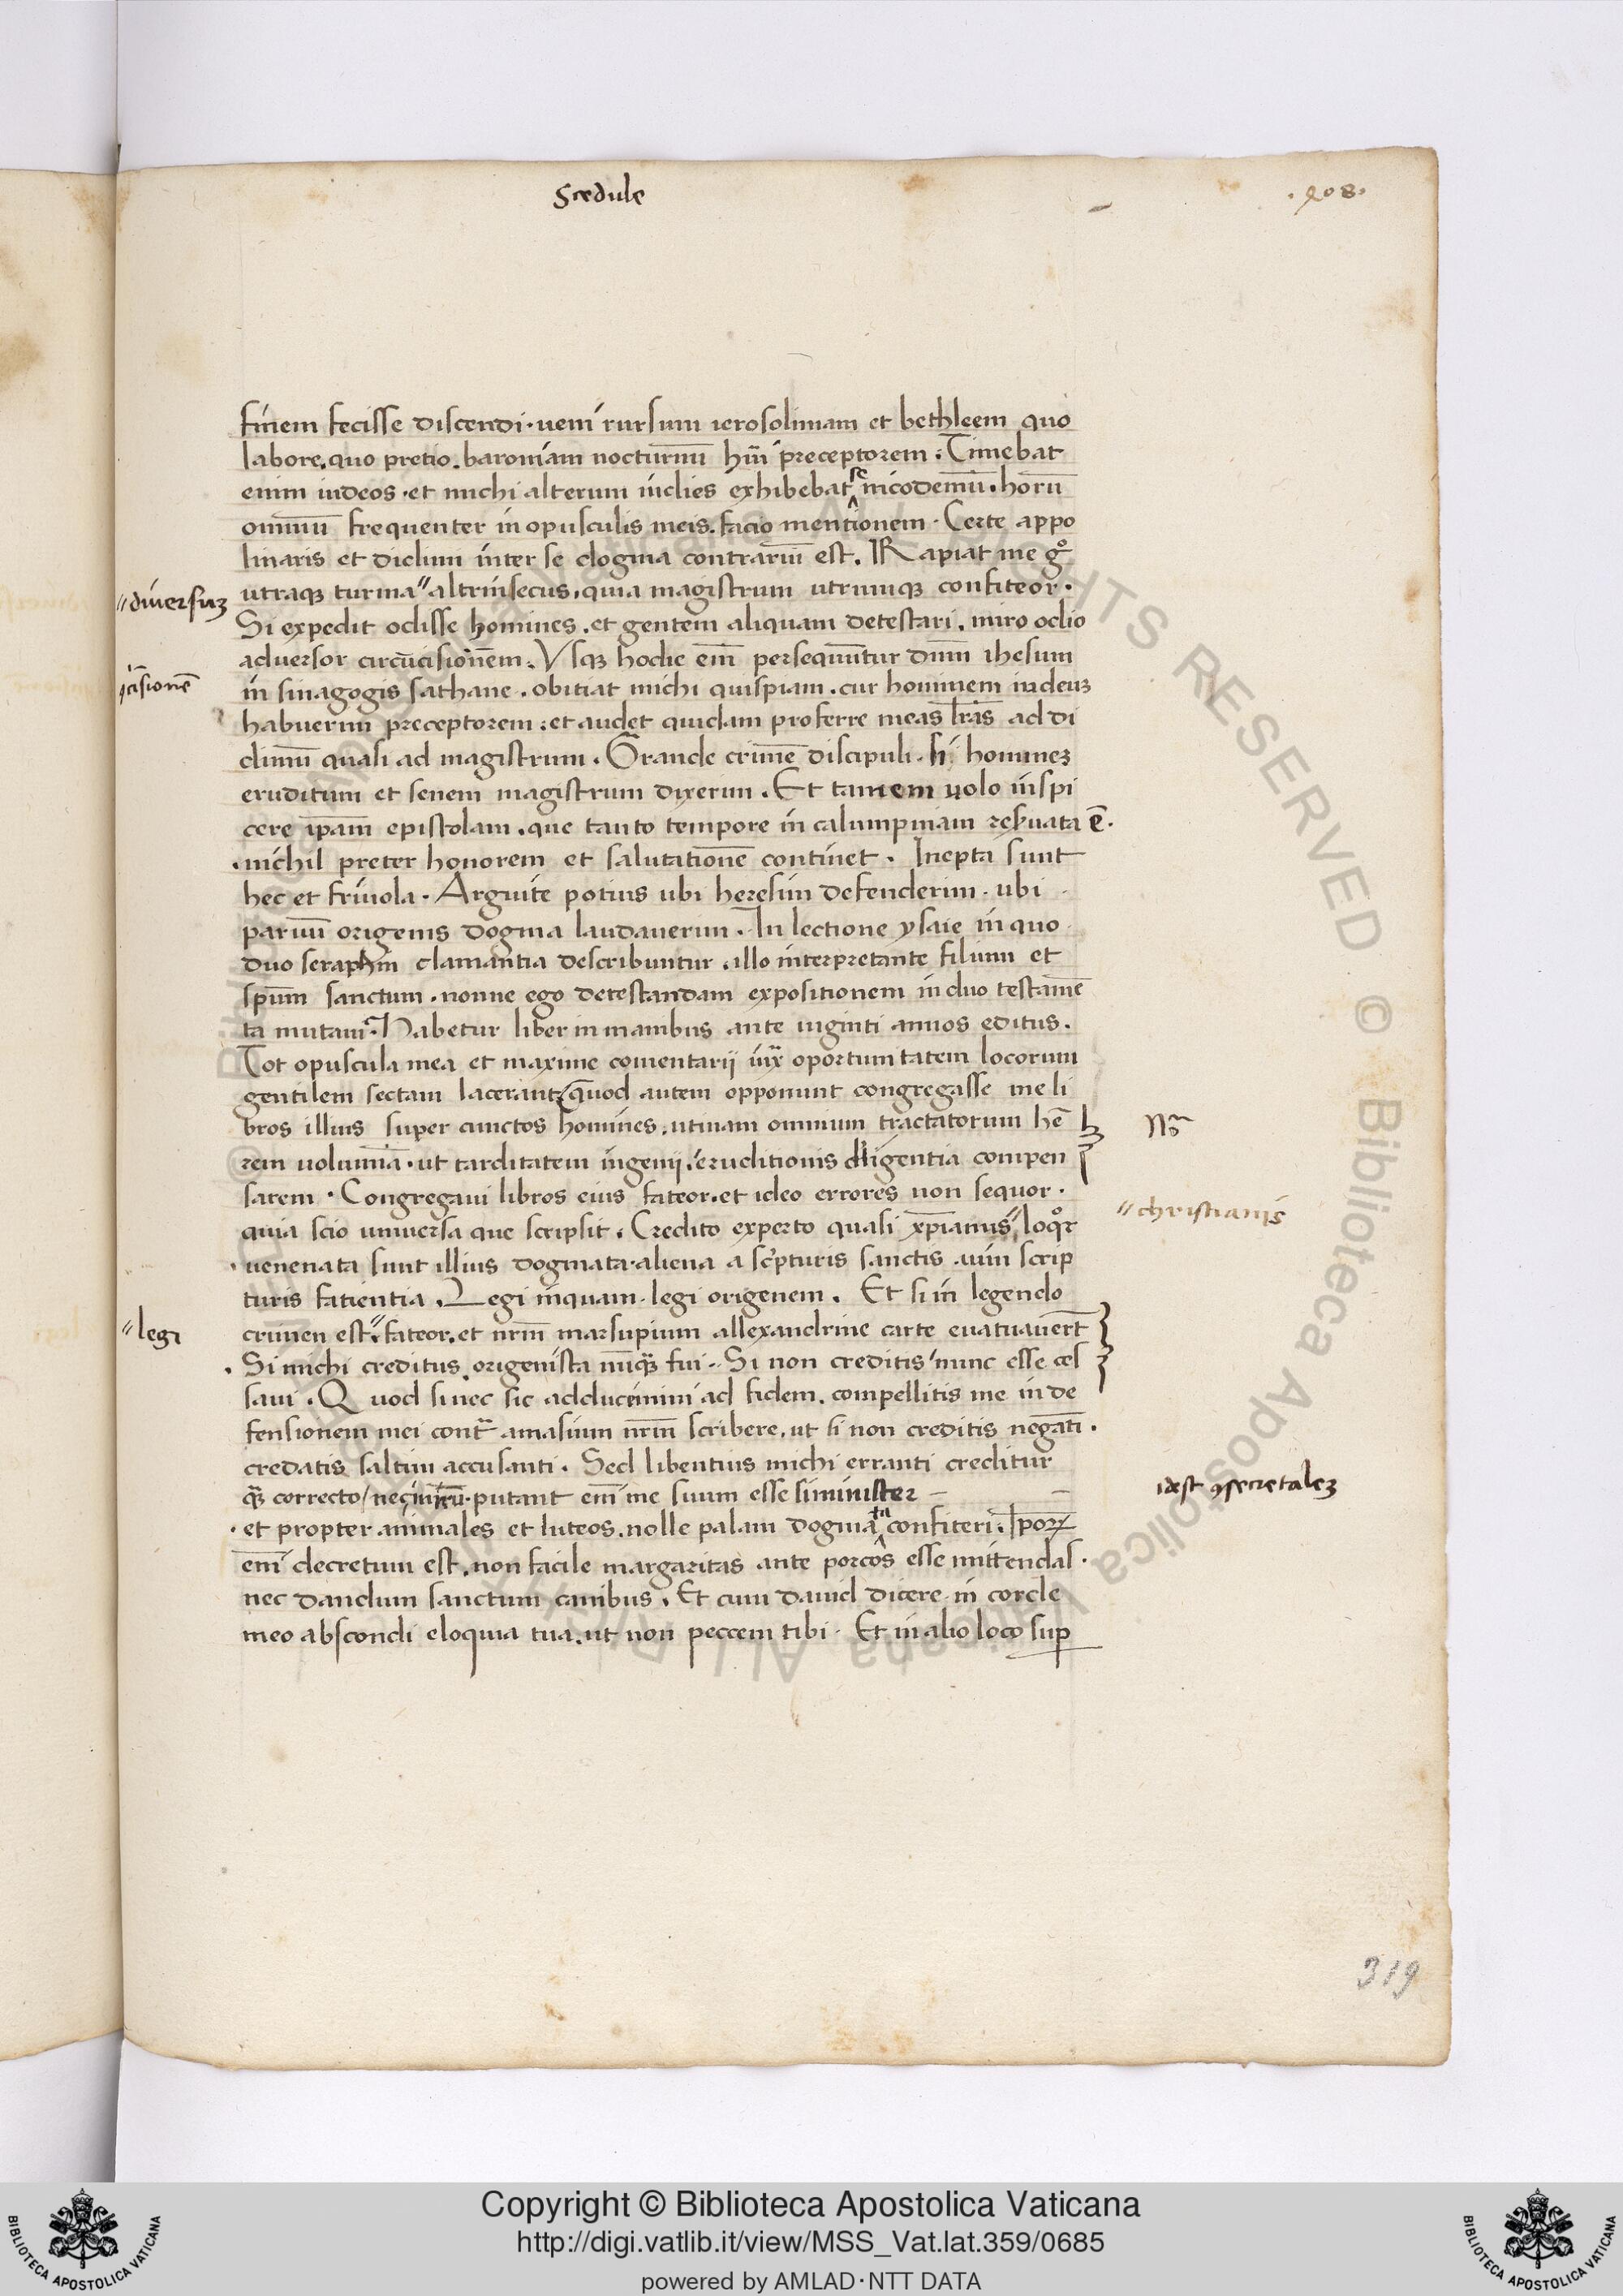 Scedule
.208.
finem fecisse discendi. ueni rursum ierosolimam et bethleem quo
labore. quo pretio. baroniam nocturnū hūi preceptorem. Timebat
enim iudeos. et michi alterum indies exhibebat se nicodemū. horū
omniū frequenter in opusculis meis. facio mentionem. Certe appo
linaris et didimi inter se dogma contrariū est. Rapiat me gͦ
"diuersuꝫ
utraqꝫ turma" altrinsecus. quia magistrum utrumqꝫ confiteor.
Si expedit odisse homines. et gentem aliquam detestari. miro odio
aduersor circūcisionem. Vsqꝫ hodie em̄ persequuntur dnm̄ ihesum
ꝯcisionē
in sinagogis sathane. obitiat michi quispiam. cur hominem iudeuꝫ
habuerim preceptorem. et audet quidam proferre meas lrās ad di
dimū quasi ad magistrum. Grande crimē discipuli. si homineꝫ
eruditum et senem magistrum dixerim. Et tamem uolo inspi
cere ip̄am epistolam. que tanto tempore in calumpniam res̄uata ē.
.nichil preter honorem et salutationē continet. Inepta sunt
hec et friuola. Arguite potius ubi heresim defenderim. ubi
paruū origenis dogma laudauerim. In lectione ysaie in quo
duo seraphin clamantia describuntur. illo interpretante filium et
sp̄um sanctum. nonne ego detestandam expositionem in duo testamē
ta mutaui. Habetur liber in manibus ante uiginti annos editus.
Tot opuscula mea et maxime comentarij iux̄ oportunitatem locorum
gentilem sectam lacerant quod autem opponunt congregasse me li
bros illius super cunctos homines. utinam omnium tractatorum hē
No
rem uolumīa. ut tarditatem ingenij. eruditionis diligentia compen
sarem. Congregaui libros eius fateor. et ideo errores non sequor.
quia scio uniuersa que scripsit. Credito experto quasi xp̄ianus" loqͦr
"christianis
.uenenata sunt illius dogmata. aliena a sc̄pturis sanctis. uim scrip
turis fatientia. Legi inquam. legi origenem. Et si in legendo
"legi
crimen est". fateor. et nrm̄ marsupium allexandrine carte euatuauerūt
.Si michi creditus. origenista nūqꝫ fui. Si non creditis nunc esse ces
saui. Quod si nec sic adducimini ad fidem. compellitis me in de
fensionem mei contra amasium nrm̄ scribere. ut si non creditis negāti.
credatis saltim accusanti. Sed libentius michi erranti creditur
idest ꝯsecretaleꝫ
qꝫ correcto / nec mirū. putant em̄ me suum esse siminister –
.et propter animales et luteos. nolle palam dogmata confiteri.
em̄ decretum est. non facile margaritas ante porcos esse mittendas.
nec dandum sanctum canibus. Et cum dauid dicere in corde
meo abscondi eloquia tua. ut non peccem tibi. Et in alio loco sup̄
319
Copyright © Biblioteca Apostolica Vaticana
http://digi.vatlib.it/view/MSS_Vat.lat.359/0685
powered by AMLAD·NTT DATA